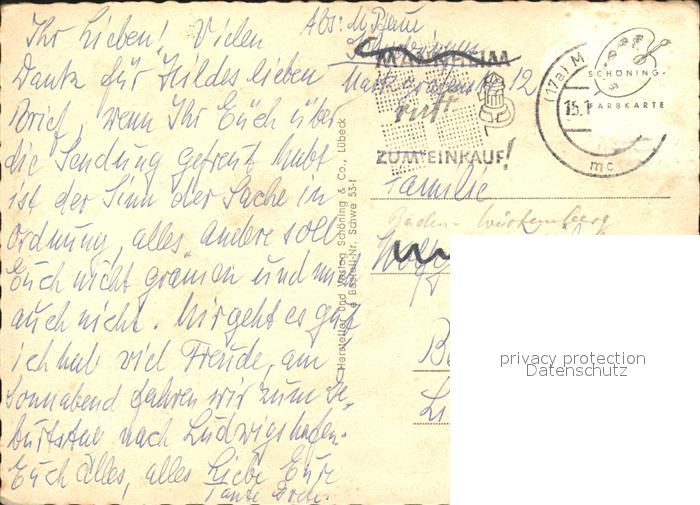 Abs: M. Baur
Ihr Lieben! Vielen
Dank für Hildes lieben
Brief, wenn Ihr Euch über
die Sendung gefreut habt
ist der Sinn der Sache in
Ordnung, alles andere soll
Euch nicht grämen und mich
auch nicht. Mir geht es gut
ich hab viel Freude, am
Sonnabend fahren wir zum Ge-
burtstag nach Ludwigshafen.
Euch alles, alles Liebe Eure
Tante
12
ruft
ZUM EINKAUF!
(17a) M
15.1
mc
SCHÖNING
FARBKARTE
Hersteller und Verlag Schöning & Co., Lübeck
Bestell-Nr. Schwe 53-f
Familie
Baden-Württemberg
privacy protection
Datenschutz